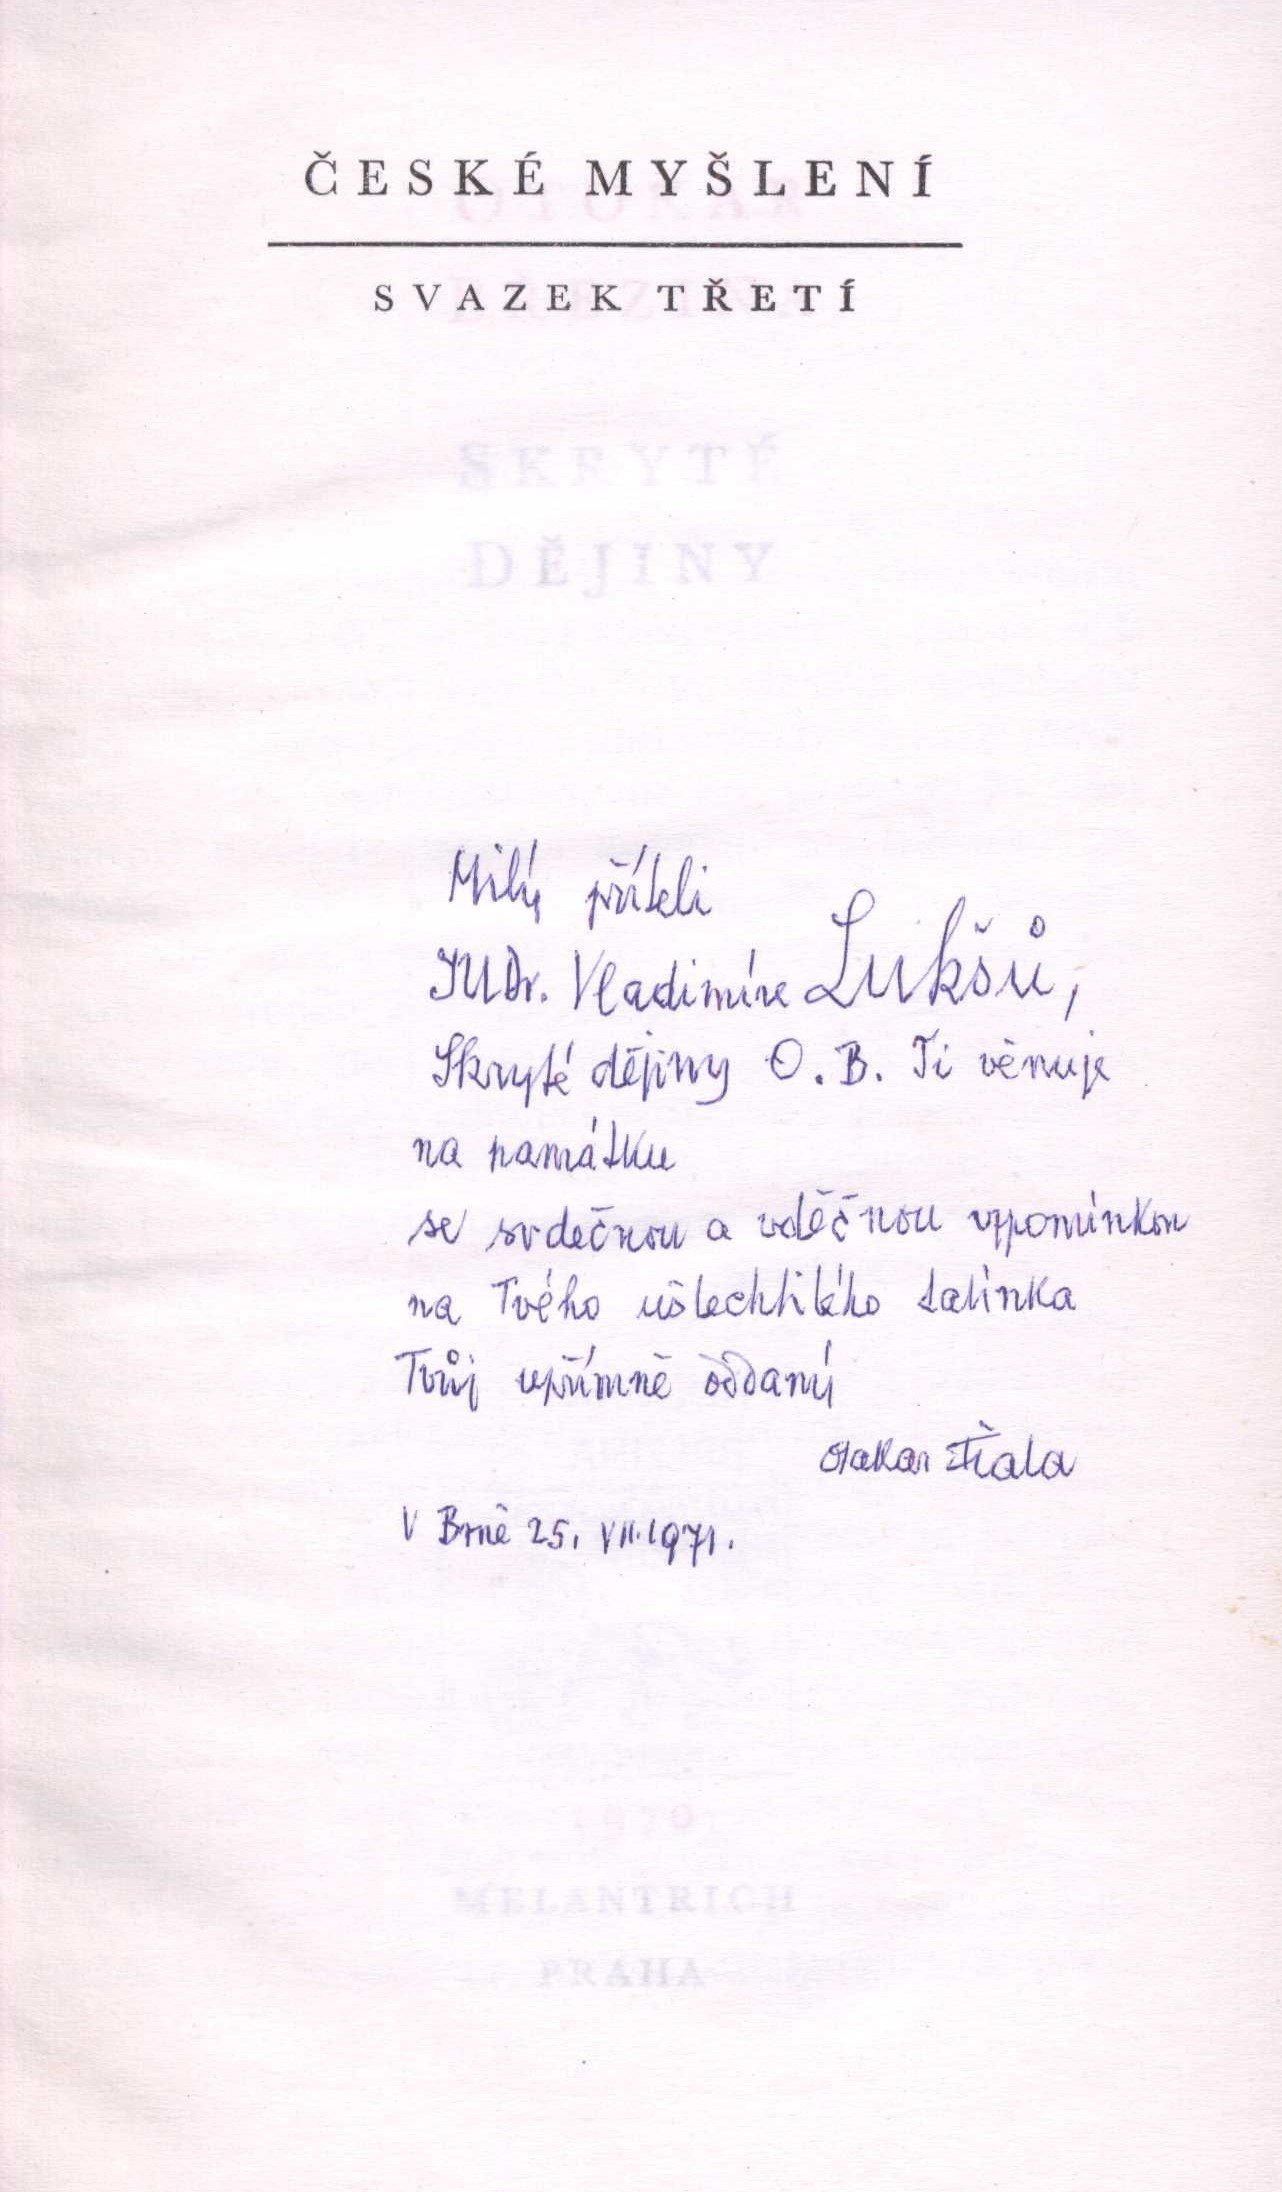 ČESKÉ MYŠLENÍ
SVAZEK TŘETÍ
SKRYTÉ
DĚJINY
Milý příteli
JUDr. Vladimíre Lukšů,
Skryté dějiny O. B. Ti věnuje
na památku
se srdečnou a vděčnou vzpomínkou
na Tvého ušlechtilého tatínka
Tvůj upřímně oddaný
Otakar Fiala
V Brně 25. VII. 1971.
1970
MELANTRICH
PRAHA